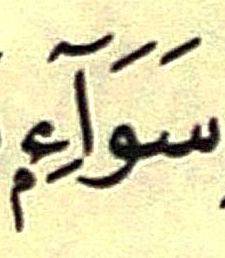 سَوَآءِۭ